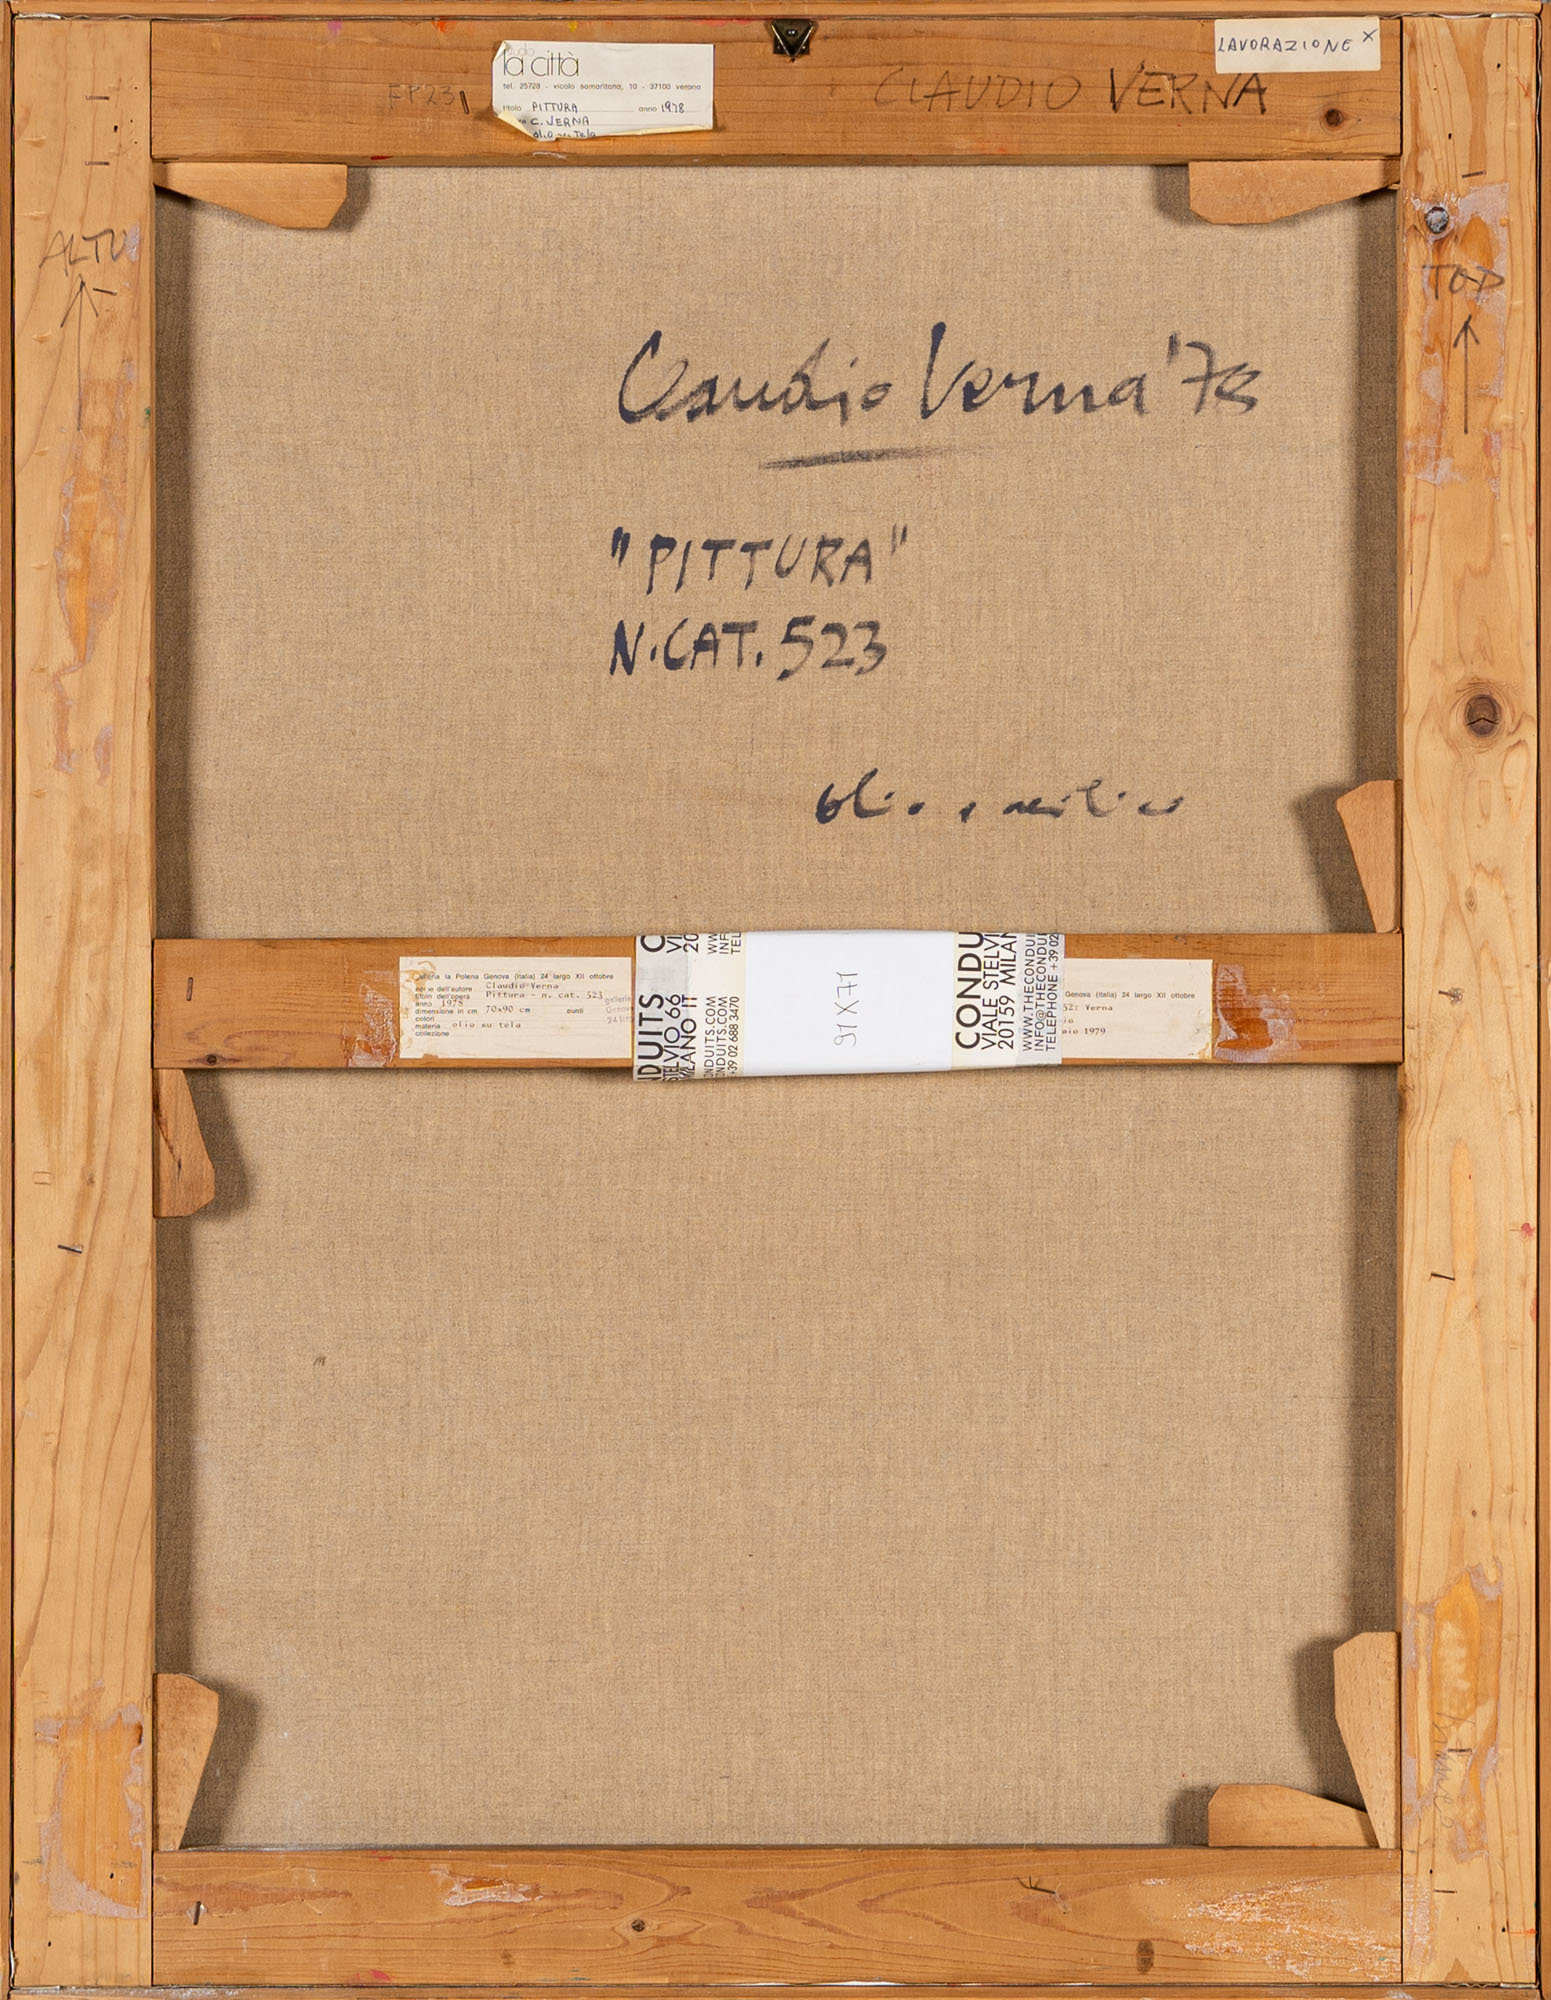 la città
tel. 25728 - vicolo samaritana, 10 - 37100 verona
titolo PITTURA anno 1978
C. VERNA
olio su tela
CLAUDIO VERNA
LAVORAZIONE X
ALTO
TOP
Claudio Verna '78
"PITTURA"
N. CAT. 523
olio e acrilico
galleria la Polena Genova (Italia) 24 largo XII ottobre
nome dell'autore Claudio Verna
titolo dell'opera Pittura - n. cat. 523
anno 1978
dimensione in cm 70x90 cm punti
colori
materia olio su tela
collezione
NDUITS
STELVIO 66
MILANO IT
NDUITS.COM
NDUITS.COM
+39 02 688 3470
91X71
CONDU
VIALE STELVI
20159 MILAN
WWW.THECONDUI
INFO@THECONDUI
TELEPHONE +39 02
Genova (Italia) 24 largo XII ottobre
52: Verna
aio 1979